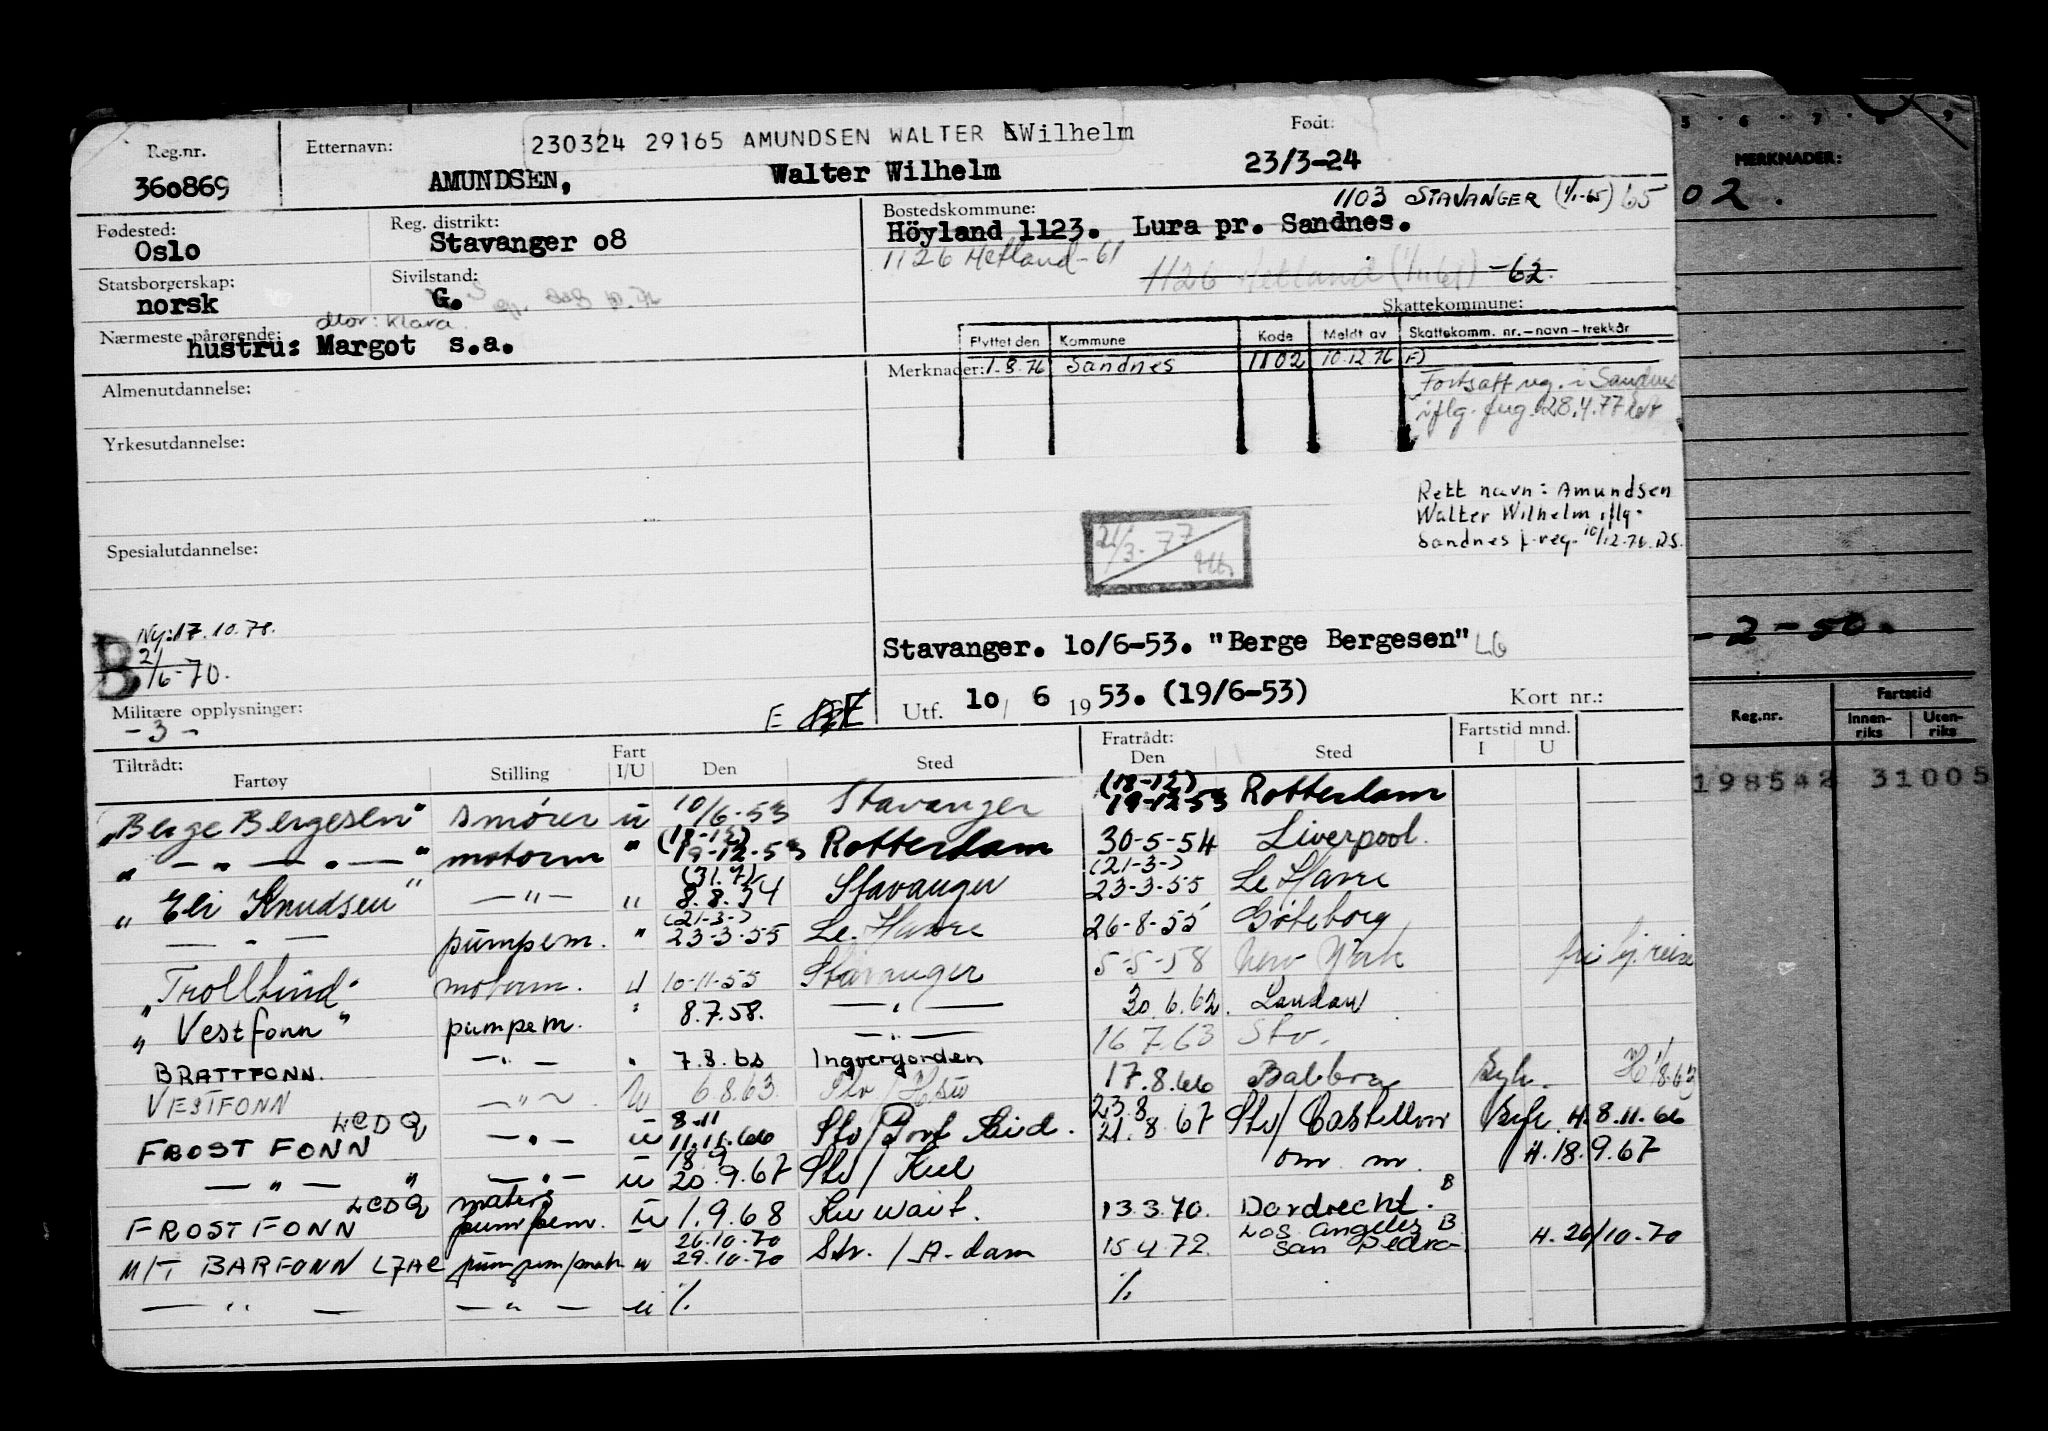 Reg.nr.
360869
Etternavn:
230324 29165 AMUNDSEN WALTER Wilhelm
AMUNDSEN, Walter Wilhelm
Født:
23/3-24
1103 STAVANGER (1/1-65) 65
Fødested:
Oslo
Reg. distrikt:
Stavanger o8
Bostedskommune:
Höyland 1123. Lura pr. Sandnes.
1126 Hetland-61
1126 Hetland (1/1-61) -62.
Statsborgerskap:
norsk
Sivilstand:
G.
Skattekommune:
Nærmeste pårørende:
Mor: Klara
hustru: Margot s.a.
Flyttet den Kommune Kode Meldt av Skattekomm. nr.-navn-trekkår
Merknader: 1.8.76 Sandnes 1102 10.12.76
Fortsatt reg. i Sandnes
iflg. 28.4.77
Almenutdannelse:
Yrkesutdannelse:
Rett navn: Amundsen
Walter Wilhelm iflg.
Sandnes f.reg. 10/12-76.
21/3-77
Spesialutdannelse:
Ny: 17.10.78.
B 2/6-70.
Stavanger. 1o/6-53. "Berge Bergesen" LG
Militære opplysninger:
- 3 -
E
Utf. 1o / 6 1953. (19/6-53)
Kort nr.:
Tiltrådt:
Fartøy Stilling Fart I/U Den Sted
Fratrådt:
Den Sted
Fartstid mnd.
I U
"Berge Bergesen" smører u 10/6-53 Stavanger (18-12) 19-12-53 Rotterdam
" — " — " — " motorm " (18-12) 19-12-53 Rotterdam 30-5-54 Liverpool.
" Eli Knudsen" — " — " (31.7) 8.8.54 Stavanger (21-3-) 23-3-55 Le Havre
— " — pumpem. " (21-3-) 23-3-55 Le Havre 26-8-55 Göteborg
"Trolltind" motorm. u 10-11-55 Stavanger 5-5-58 New York fri hj.reise
" Vestfonn " pumpem. " 8.7.58. — " — 20.6.62. Landau
BRATTFONN. — " — " Ingvergorden — " — 16.7.63 Stv.
VESTFONN — " — u 6.8.63. 17.8.66 Syk.
FROST FONN LCDQ — " — u 8-11 11.11.66 Stv/Port Said. 23.8 21.8.67 Stv/Castellon Syk. H.8.11.66
— " — " — " — u 18.9 20.9.67 Stv/Kiel om m. H.18.9.67
FROST FONN LCDQ pumpem. u 1.9.68 Kuwait. 13.3.70. Dordrecht. B
M/T BARFONN u 26.10.70 29.10.70 Stv. / A-dam 15.4.72. Los Angeles B San Pedro H. 26/10-70
— " — — " — u %. %.
5 · 6 · 7 · 8 · 9
MERKNADER:
02.
-2-50.
Reg.nr.
Fartstid
Innen-riks Uten-riks
198542 31005